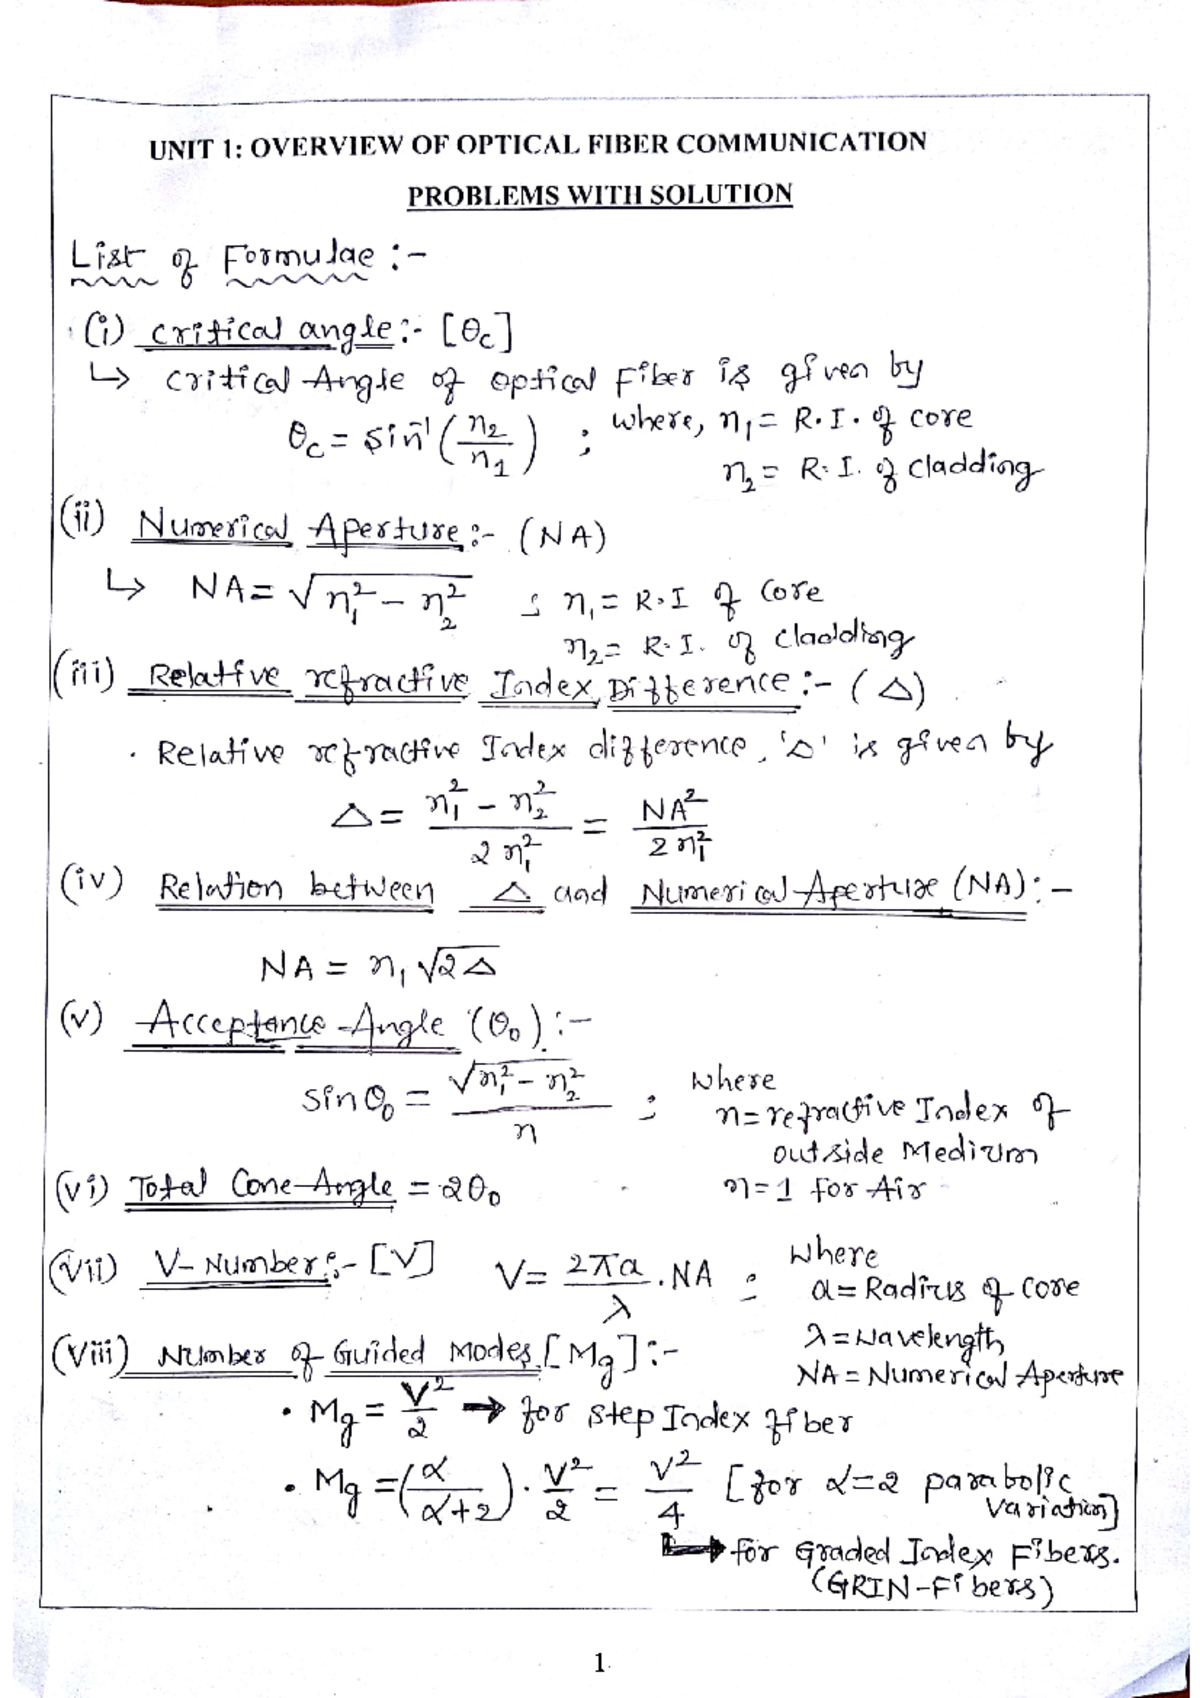 UNIT 1: OVERVIEW OF OPTICAL FIBER COMMUNICATION
PROBLEMS WITH SOLUTION
List of Formulae :-
(i) critical angle:- [θc]
↳ critical Angle of optical Fiber is given by
θc = sin⁻¹ (n₂/n₁) ; where, n₁ = R.I. of core
n₂ = R.I. of cladding
(ii) Numerical Aperture:- (NA)
↳ NA = √(n₁² - n₂²) ; n₁ = R.I of core
n₂ = R.I. of cladding
(iii) Relative refractive Index Difference:- (Δ)
• Relative refractive Index difference, 'Δ' is given by
Δ = (n₁² - n₂²)/(2 n₁²) = NA²/(2 n₁²)
(iv) Relation between Δ and Numerical Aperture (NA):-
NA = n₁ √2Δ
(v) Acceptance Angle (θ₀):-
sin θ₀ = √(n₁² - n₂²)/n ; where
n = refractive Index of
outside Medium
n = 1 for Air
(vi) Total Cone Angle = 2θ₀
(vii) V-Number:- [V] V = (2πa/λ) . NA ; where
a = Radius of core
λ = wavelength
NA = Numerical Aperture
(viii) Number of Guided Modes [Mg]:-
• Mg = V²/2 → for step Index fiber
• Mg = (α/(α+2)) . V²/2 = V²/4 [for α=2 parabolic
variation]
↳ for Graded Index Fibers.
(GRIN-Fibers)
1